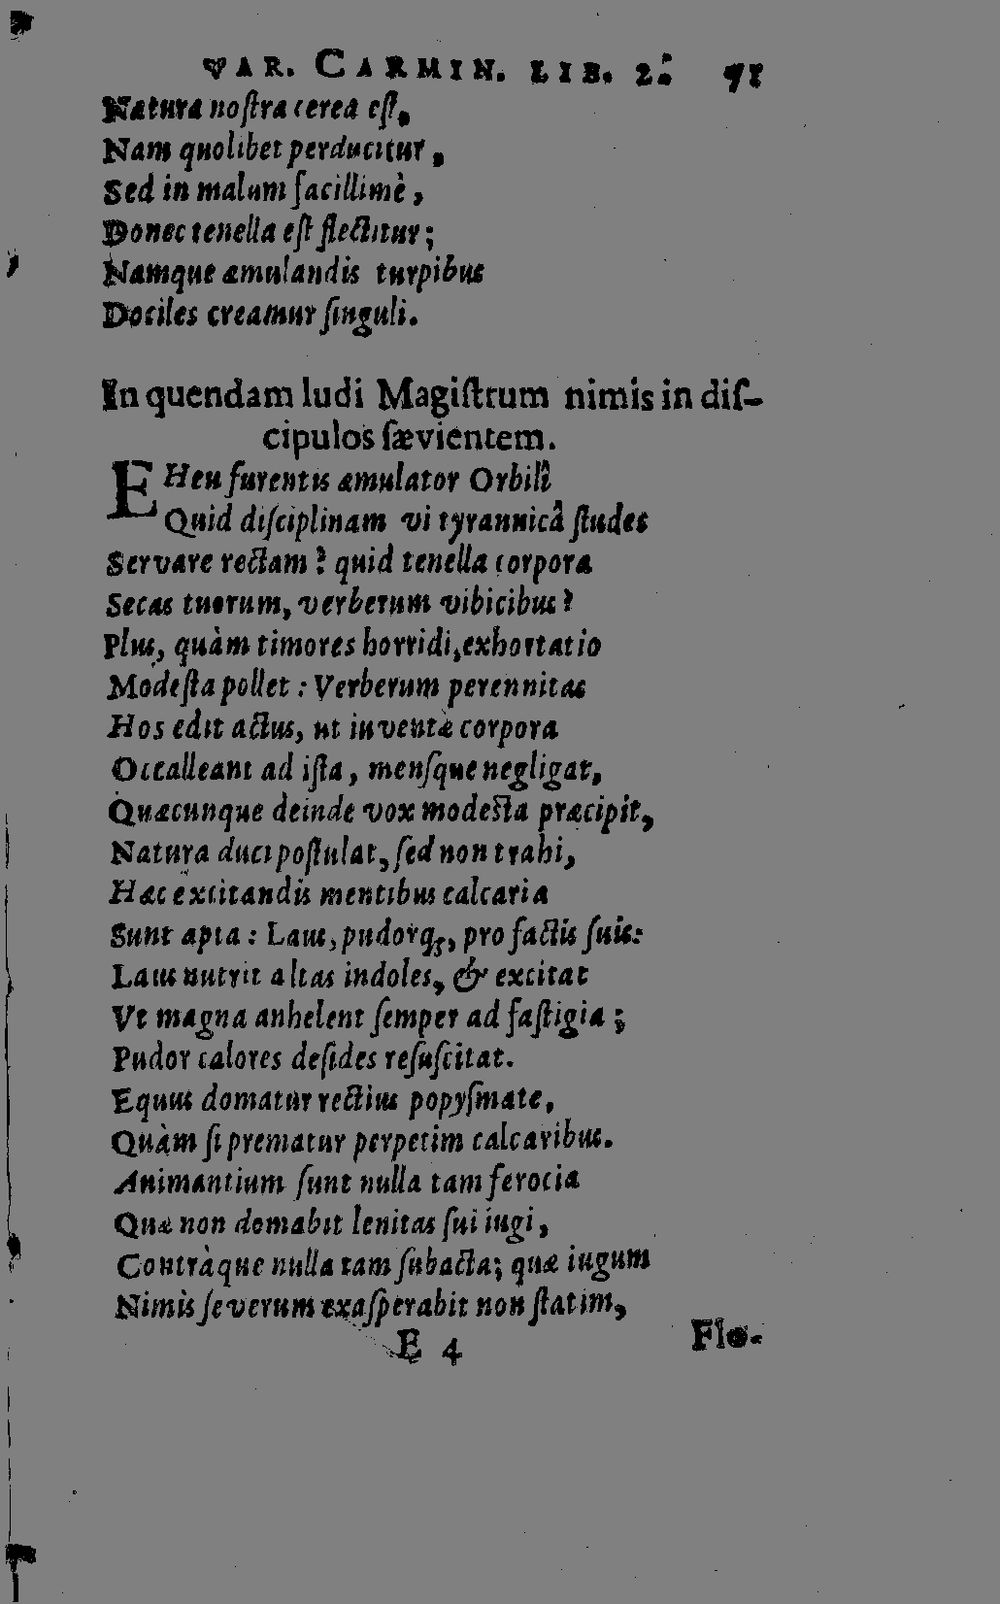 VAR. CARMIN. LIB. 2. 71
Natura nostra cerea est,
Nam quolibet perducitur,
Sed in malum facillimè,
Donec tenella est flectitur;
Namque æmulandis turpibus
Dociles creamur singuli.
In quendam ludi Magistrum nimis in dis-
cipulos sævientem.
EHeu furentis æmulator Orbilî
Quid disciplinam vi tyrannicâ studes
Servare rectam? quid tenella corpora
Secas tuorum, verberum vibicibus?
Plus, quàm timores horridi, exhortatio
Modesta pollet: Verberum perennitas
Hos edit actus, ut iuventæ corpora
Occalleant ad ista, mensque negligat,
Quæcunque deinde vox modesta præcipit,
Natura duci postulat, sed non trahi,
Hæc excitandis mentibus calcaria
Sunt apta: Laus, pudorq;, pro factis suis:
Laus nutrit altas indoles, & excitat
Vt magna anhelent semper ad fastigia;
Pudor calores desides resuscitat.
Equus domatur rectius popysmate,
Quàm si prematur perpetim calcaribus.
Animantium sunt nulla tam ferocia
Quæ non domabit lenitas sui iugi,
Contràque nulla tam subacta; quæ iugum
Nimis severum exasperabit non statim,
E 4 Flo-